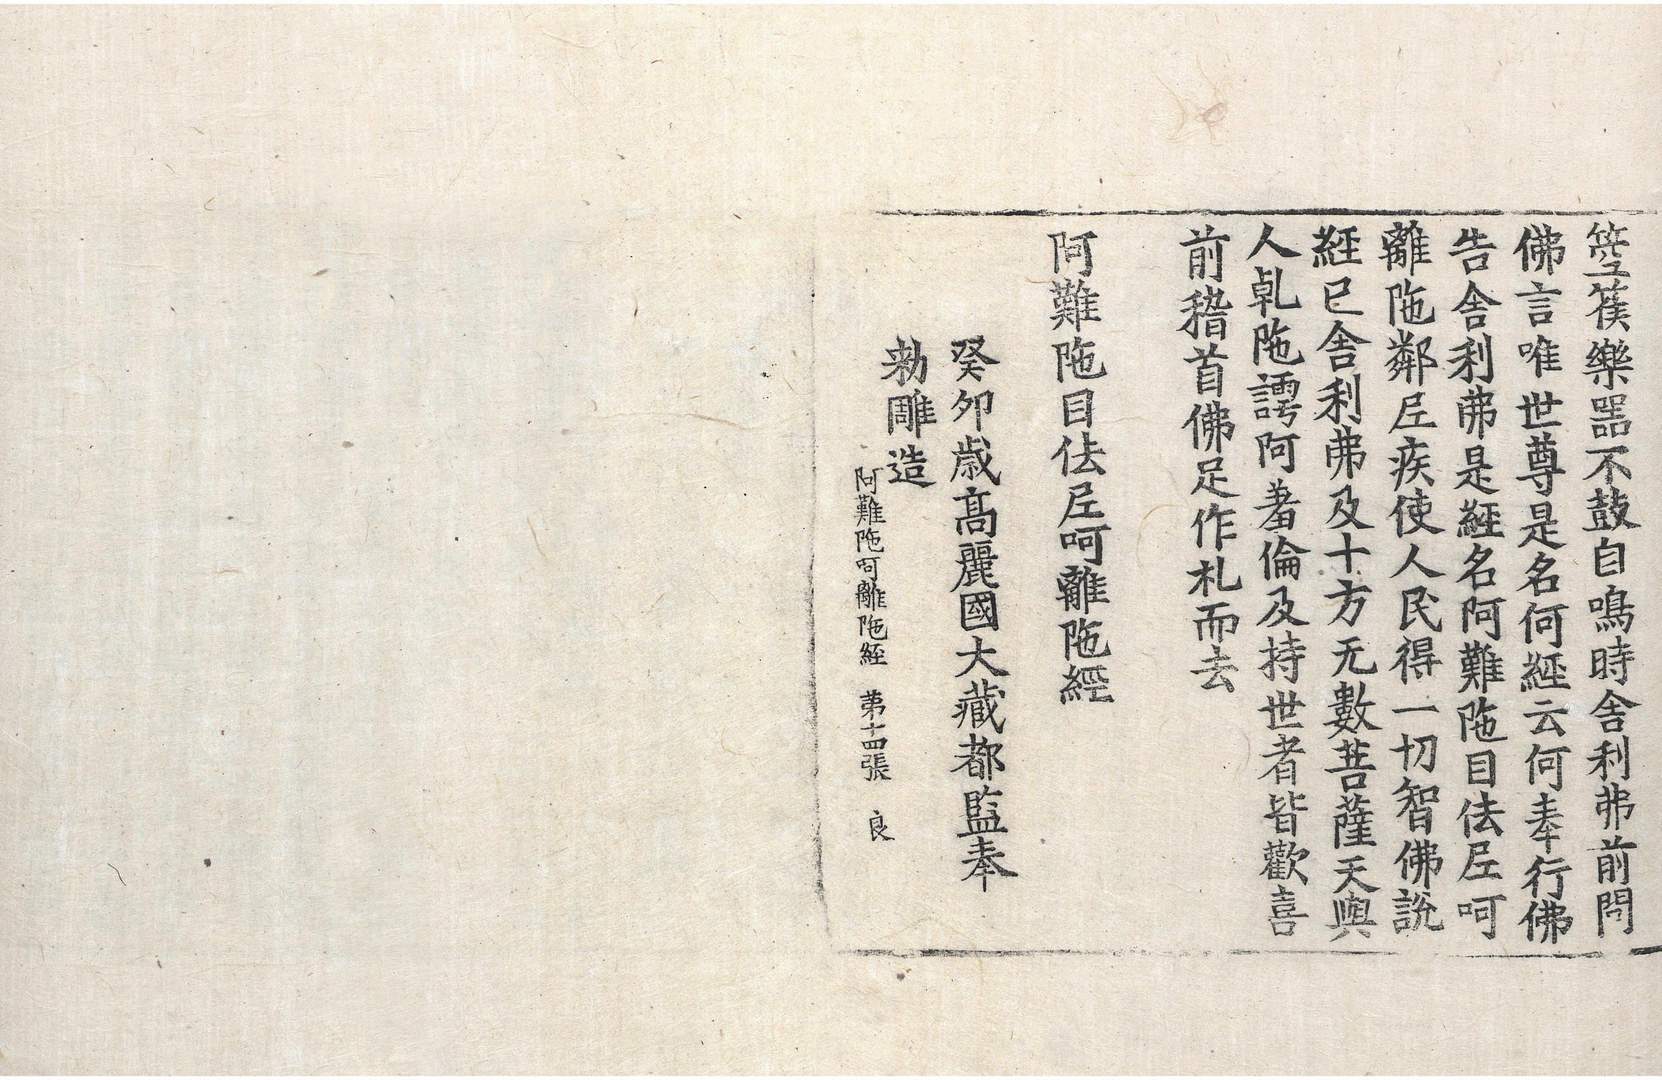 箜篌樂器不鼓自鳴時舍利弗前問
佛言唯世尊是名何經云何奉行佛
告舍利弗是經名阿難陁目佉𡰱呵
離陁鄰𡰱疾使人民得一切智佛說
經已舍利弗及十方无數菩薩天與
人乹陁謣阿羞倫及持世者皆歡喜
前稽首佛足作礼而去
阿難陁目佉𡰱呵離陁經
癸卯歲高麗國大藏都監奉
勑雕造
阿難陁呵離陁經 苐十四張 良